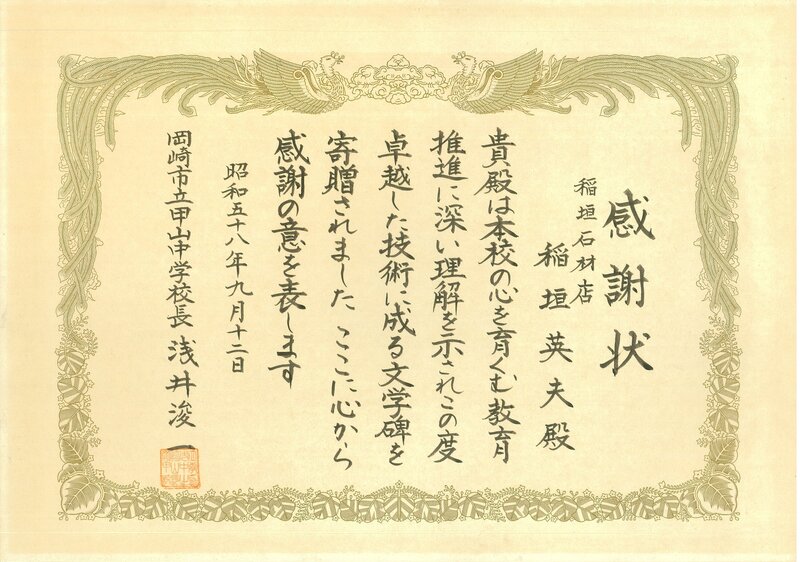 感謝状
稲垣石材店
稲垣英夫殿
貴殿は本校の心を育くむ教育
推進に深い理解を示されこの度
卓越した技術に成る文学碑を
寄贈されました ここに心から
感謝の意を表します
昭和五十八年九月十二日
岡崎市立甲山中学校長 浅井浚一